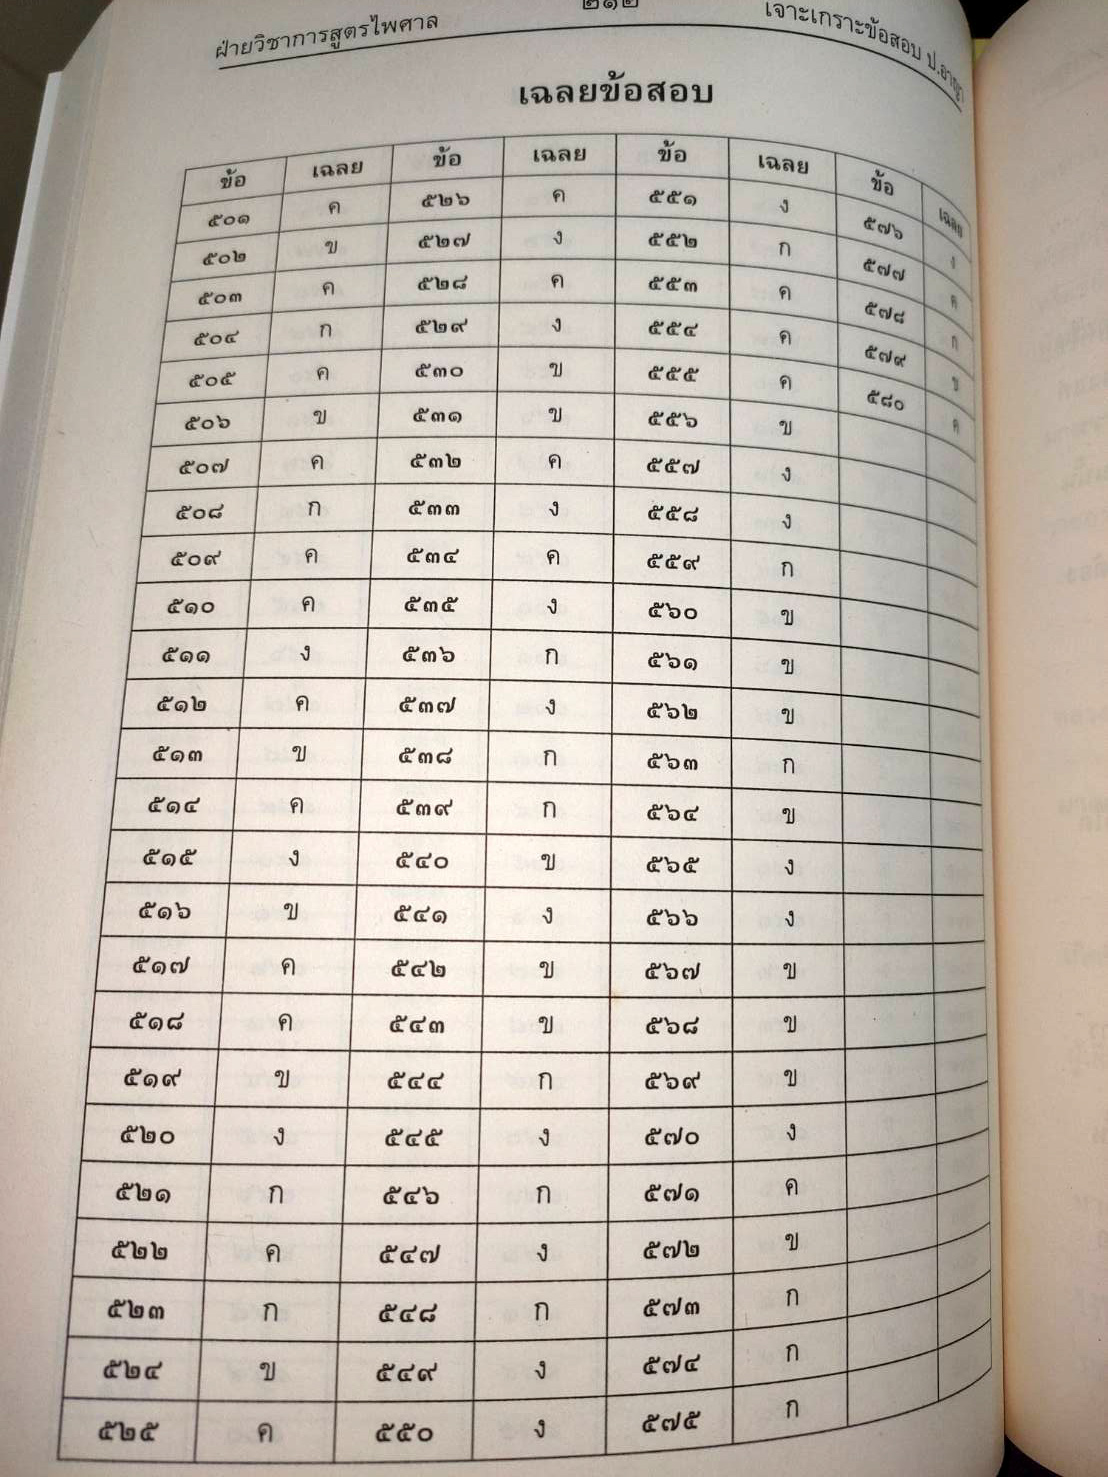 ฝ่ายวิชาการสูตรไพศาล ๒๑๒ เจาะเกราะข้อสอบ ป.อาญา
เฉลยข้อสอบ
ข้อ เฉลย ข้อ เฉลย ข้อ เฉลย ข้อ เฉลย
๕๐๑ ค ๕๒๖ ค ๕๕๑ ง ๕๗๖ ง
๕๐๒ ข ๕๒๗ ง ๕๕๒ ก ๕๗๗ ค
๕๐๓ ค ๕๒๘ ค ๕๕๓ ค ๕๗๘ ก
๕๐๔ ก ๕๒๙ ง ๕๕๔ ค ๕๗๙ ข
๕๐๕ ค ๕๓๐ ข ๕๕๕ ค ๕๘๐ ค
๕๐๖ ข ๕๓๑ ข ๕๕๖ ข
๕๐๗ ค ๕๓๒ ค ๕๕๗ ง
๕๐๘ ก ๕๓๓ ง ๕๕๘ ง
๕๐๙ ค ๕๓๔ ค ๕๕๙ ก
๕๑๐ ค ๕๓๕ ง ๕๖๐ ข
๕๑๑ ง ๕๓๖ ก ๕๖๑ ข
๕๑๒ ค ๕๓๗ ง ๕๖๒ ข
๕๑๓ ข ๕๓๘ ก ๕๖๓ ก
๕๑๔ ค ๕๓๙ ก ๕๖๔ ข
๕๑๕ ง ๕๔๐ ข ๕๖๕ ง
๕๑๖ ข ๕๔๑ ง ๕๖๖ ง
๕๑๗ ค ๕๔๒ ข ๕๖๗ ข
๕๑๘ ค ๕๔๓ ข ๕๖๘ ข
๕๑๙ ข ๕๔๔ ก ๕๖๙ ข
๕๒๐ ง ๕๔๕ ง ๕๗๐ ง
๕๒๑ ก ๕๔๖ ก ๕๗๑ ค
๕๒๒ ค ๕๔๗ ง ๕๗๒ ข
๕๒๓ ก ๕๔๘ ก ๕๗๓ ก
๕๒๔ ข ๕๔๙ ง ๕๗๔ ก
๕๒๕ ค ๕๕๐ ง ๕๗๕ ก